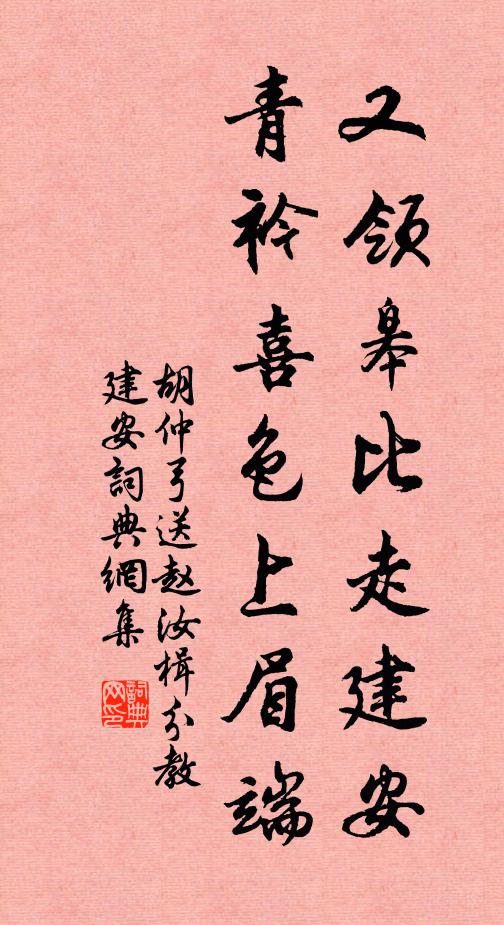 又領皋比走建安
青衿喜色上眉端
胡仲弓送赵汝楫分教
建安詞典網集
詞典
网印